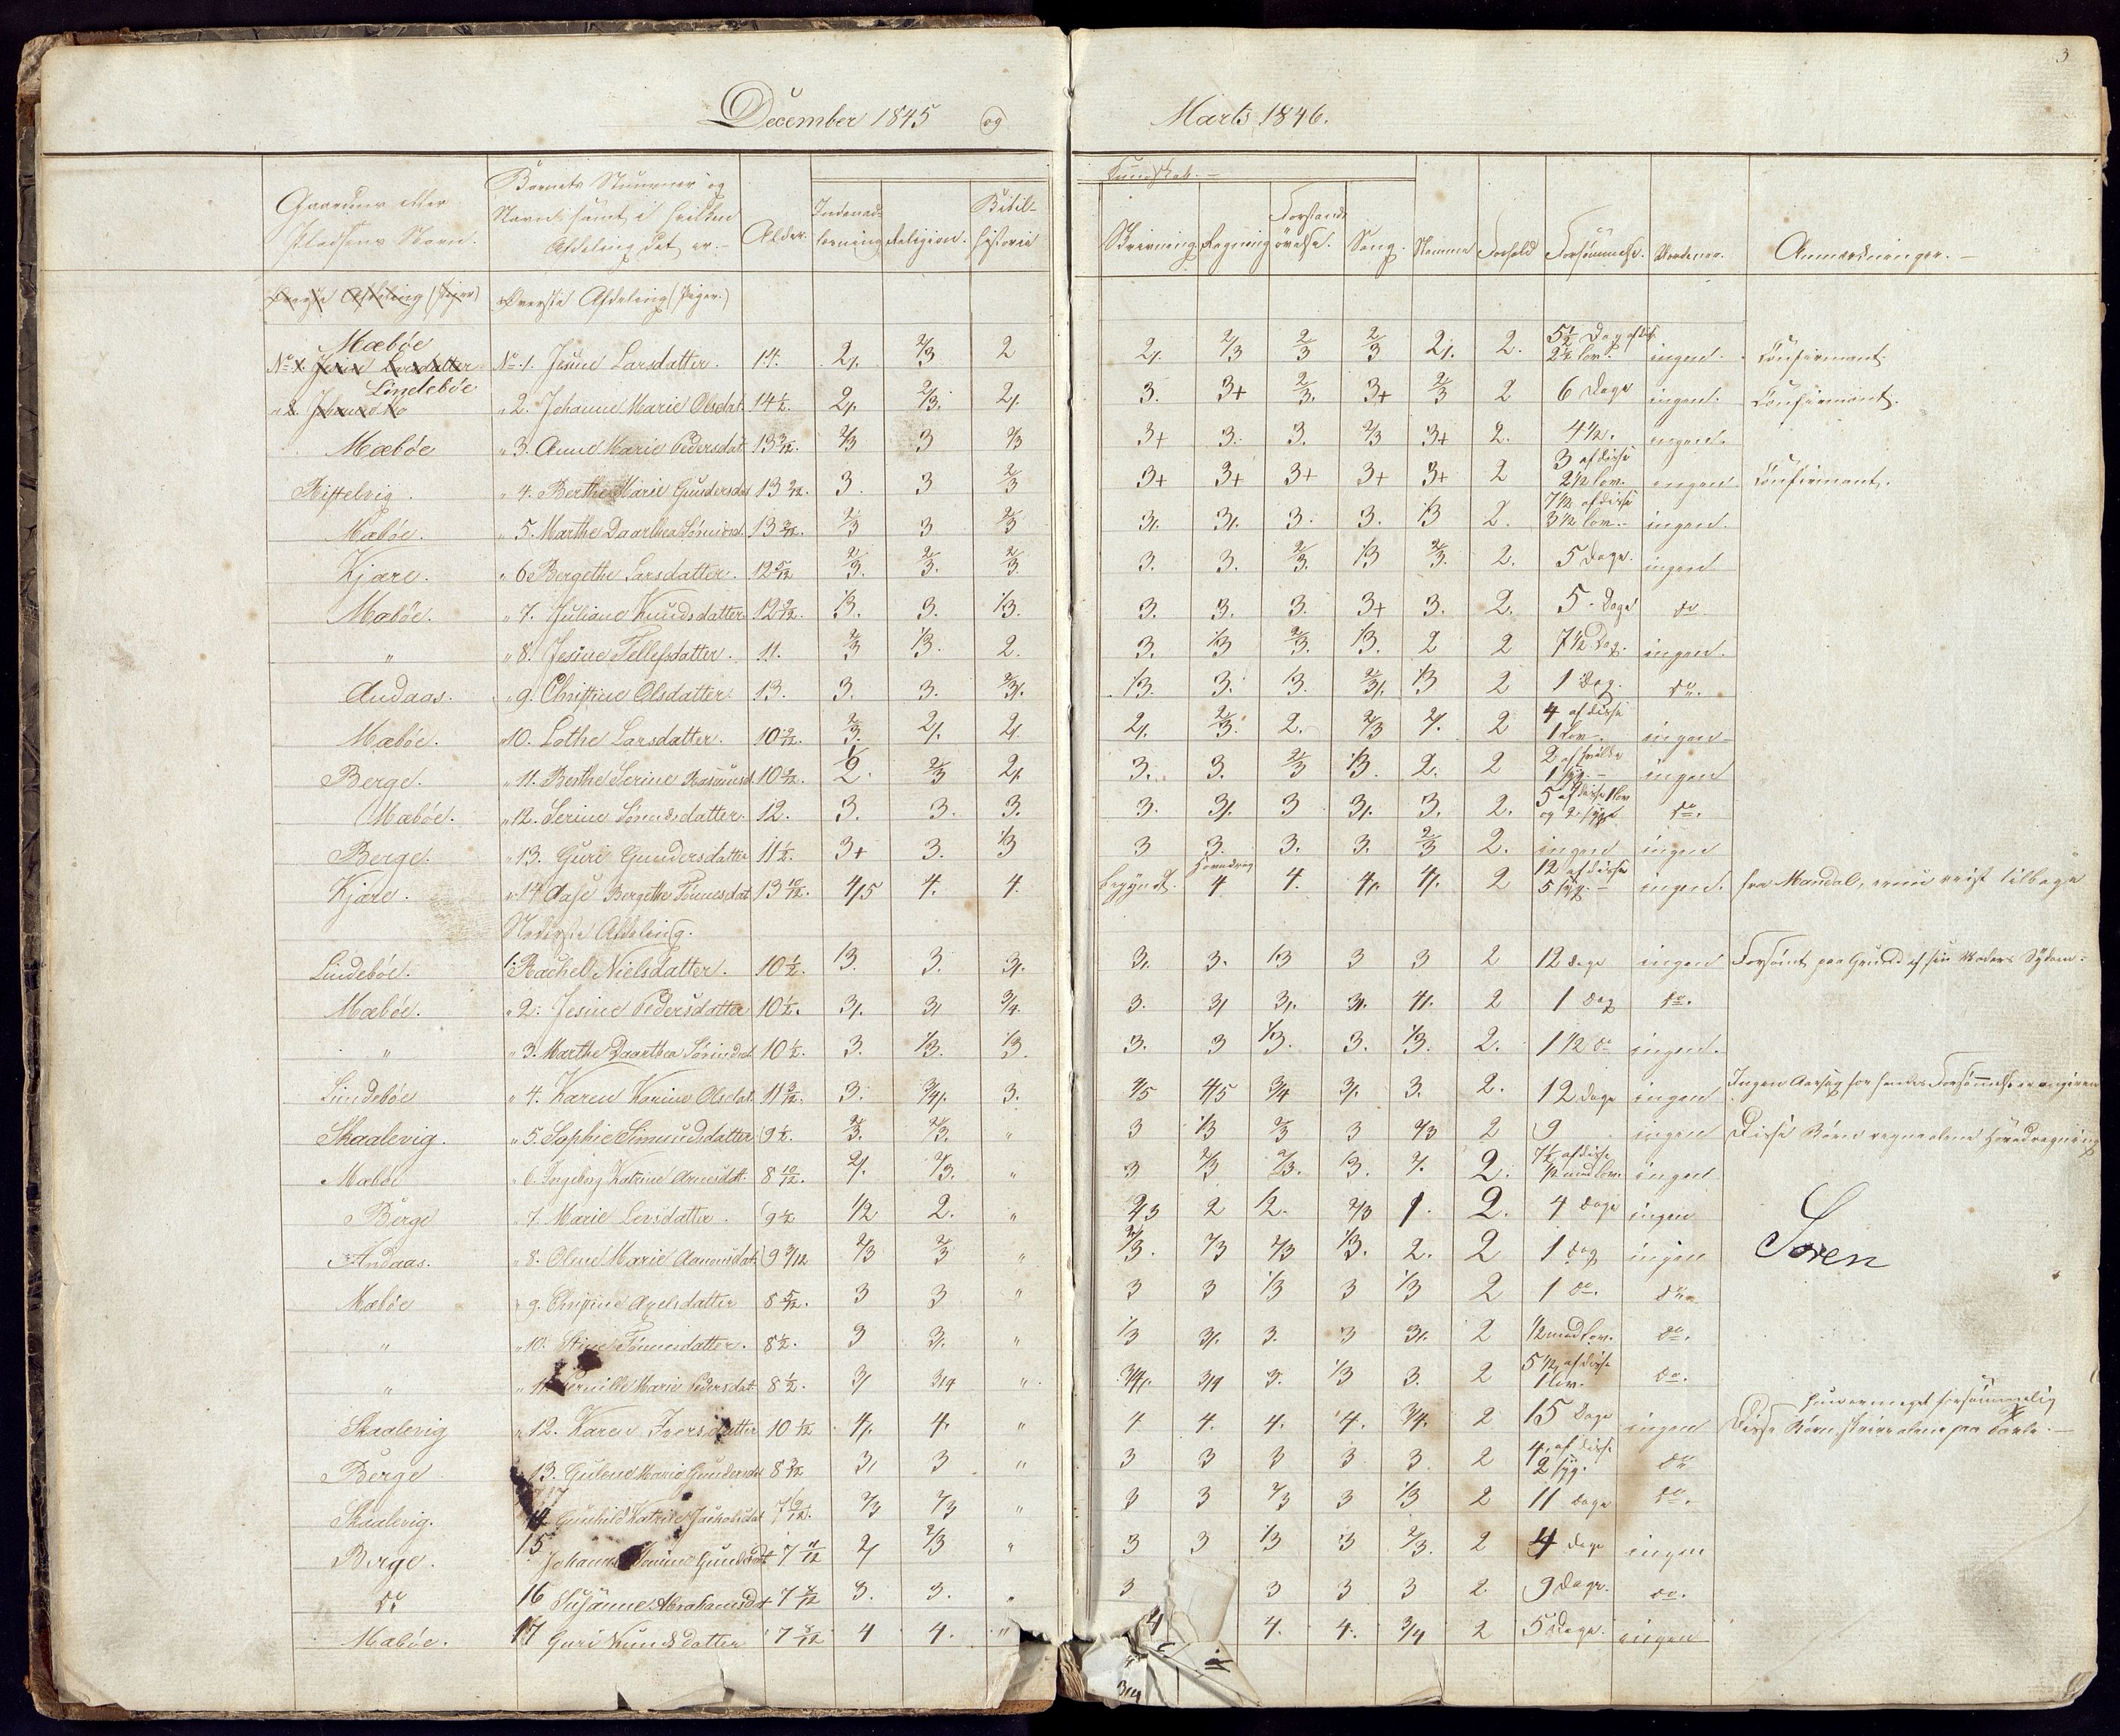 3
December 1845 og Marts 1846.
Kundskab. –
Gaardens eller Pladsens Navn. Barnets Nummer og Navn samt i hvilken Afdeling det er. – Alder. Indenadlæsning Religion. Bibelhistorie Skrivning Regning Forstandsøvelse. Sang. Stemme Forhold Forsømmelse. Anmærkninger. –
Øverste Afdeling (Piger) Øverste Afdeling (Piger.)
Mæbøe No. 1. Jesine Larsdatter. 14. 2/. 2/3 2 2/. 2/3 2/3 2/3 2/. 2. 5½ Dag af disse 2½ lov. ingen. Confirmant.
Lindebøe " 2. Johanne Marie Olsdat. 14½. 2/. 2/3. 2/. 3. 3+ 2/3. 3+ 2/3 2 6 Dage ingen. Confirmant.
Mæbøe " 3. Anne Marie Pedersdat. 13 3/12. 2/3 3 2/3 3+ 3. 3. 2/3 3+ 2. 4½. ingen.
Riffelvig. " 4. Berthe Marie Gundersdat 13 2/12. 3. 3 2/3 3+ 3+ 3+ 3+ 3+ 2 3 af disse 2½ lov. ingen. Confirmant.
Mæbøe. " 5. Marthe Daarthea 13 3/12. 2/3 3 2/3 3/. 3/. 3. 3. /3 2. 7½ af disse 3½ lov. – ingen.
Kjære. " 6. Bergethe Larsdatter. 12 5/12 2/3. 2/3. 2/3. 3. 3. 2/3. /3 2/3. 2. 5 Dage. ingen
Mæbøe. " 7. Juliane Knudsdatter 12 2/12. /3. 3. /3. 3. 3. 3. 3+ 3. 2. 5 Dage do
" " 8. Jesine Tellefsdatter. 11. 2/3 /3. 2. 3. /3 2/3. /3. 2 2 7½ Dag. ingen.
Andaas. " 9. Christine Olsdatter. 13. 3. 3. 2/3/. /3. 3. /3. 2/3/. /3 2 1 Dag. do.
Mæbøe. " 10. Lothe Larsdatter. 10 9/12. 2/3. 2/. 2/. 2/. 2/3. 2. 2/3 2/. 2 4 af disse 1 lov. ingen
Berge. " 11. Berthe Serine Rasmusd. 10 9/12. 2. 2/3 2/. 3. 3. 2/3 /3. 2. 2 2 af hvilke 1 syg. – ingen
Mæbøe. " 12. Serine Sørensdatter. 12. 3. 3. 3. 3. 3/. 3 3/. 3. 2. 5 af disse 1 lov og 2 syge do.
Berge. " 13. Guri Gundersdatter 11½. 3+ 3. /3 3 3. 3. 3. 2/3 2. ingen ingen
Kjære. " 14 Aase Bergethe Tønnesdat. 13 10/12. 4/5 4. 4. begyndt. Hovedreg 4 4. 4/. 4/. 2 12 af disse 5 syg. – ingen. fra Mandal, tilbage
Nederste Afdeling.
Lindebøe. 1. Rachel Nielsdatter. 10½. /3. 3. 3/. 3/. 3. /3 3 3 2 12 Dage ingen Forsømt paa Grund af sin Moders Sygdom.
Mæbøe. " 2. Jesine Pedersdatter 10½. 3/. 3/ 3/4. 3. 3/ 3/. 3/. 4/. 2 1 Dag do.
" " 3. Marthe Daarthea 10½. 3. /3. /3. 3. 3 /3. 3. /3. 2. 1½ do ingen.
Lindebøe " 4. Karen Karine Olsdat. 11 9/12. 3. 3/4/. 3. 4/5 4/5 3/4 3/. 3. 2. 12 Dage ingen Ingen Aarsag for hendes Forsømmelse er angiven
Skaalevig. " 5. Sophie Simundsdatter 9½. 2/3. 2/3. " 3 /3 2/3 3 2/3 2 9 ingen Disse Børn regne alene Hovedregning
Mæbøe " 6. Ingeborg Katrine Arnesdat. 8 10/12. 2/. 2/3. " 3 2/3 2/3. /3. 2/. 2. 7½ af disse ½ med lov. ingen
Berge " 7. Marie Larsdatter. 9½ ½ 2. " 2/3 2 /2. 2/3 1. 2. 4 Dage ingen
Andaas. " 8. Oline Marie Aanensdat. 9 3/12 2/3 2/3 " 2/3. 2/3 2/3 /3. 2. 2 1 Dag ingen Søren
Mæbøe " 9. Christine Axelsdatter 8 5/12. 3 3 " 3 3 /3 3 /3 2 1 do. do
" " 10. Stine Tønnesdatter. 8½. 3 3/. " /3 3/. 3. 3 3/. 2 ½ med lov. do.
" " 11. Pernille Marie Pedersdat. 8½. 3/ 3/4 " 3/4/. 3/4 3. /3 3. 2 5½ af disse 1 lov. do.
Skaalevig " 12. Karen Iversdatter 10 1/12 4/. 4. " 4 4. 4. 4. 3/4. 2 15 Dage ingen hun er meget forsømmelig Disse Børn skrive alene paa Tavle. –
Berge " 13. Gulene Marie Gundersdat 8 3/12 3/ 3 " 3 3 3 3 3. 2 4 af disse 2 syg. do
Skaalevig. 14 Gunhild Katrine 7 9/12. 2/3 2/3 " 3 3 2/3 3 /3 2 11 Dage do.
Berge. 15 Johanne Gundersdat 7 11/12 2/ 2/3 " 3 3 /3 3 2/3. 2 4 Dage ingen
do 16 Susanne Abrahamsdat 7 8/12 3. 3. " 3 3 3 3 2 9 Dage. do.
Mæbøe. 17 Guri Knudsdatter 7 5/12 4 4. " 4 4. 4. 3/4 2 5 Dage. ingen
3/4